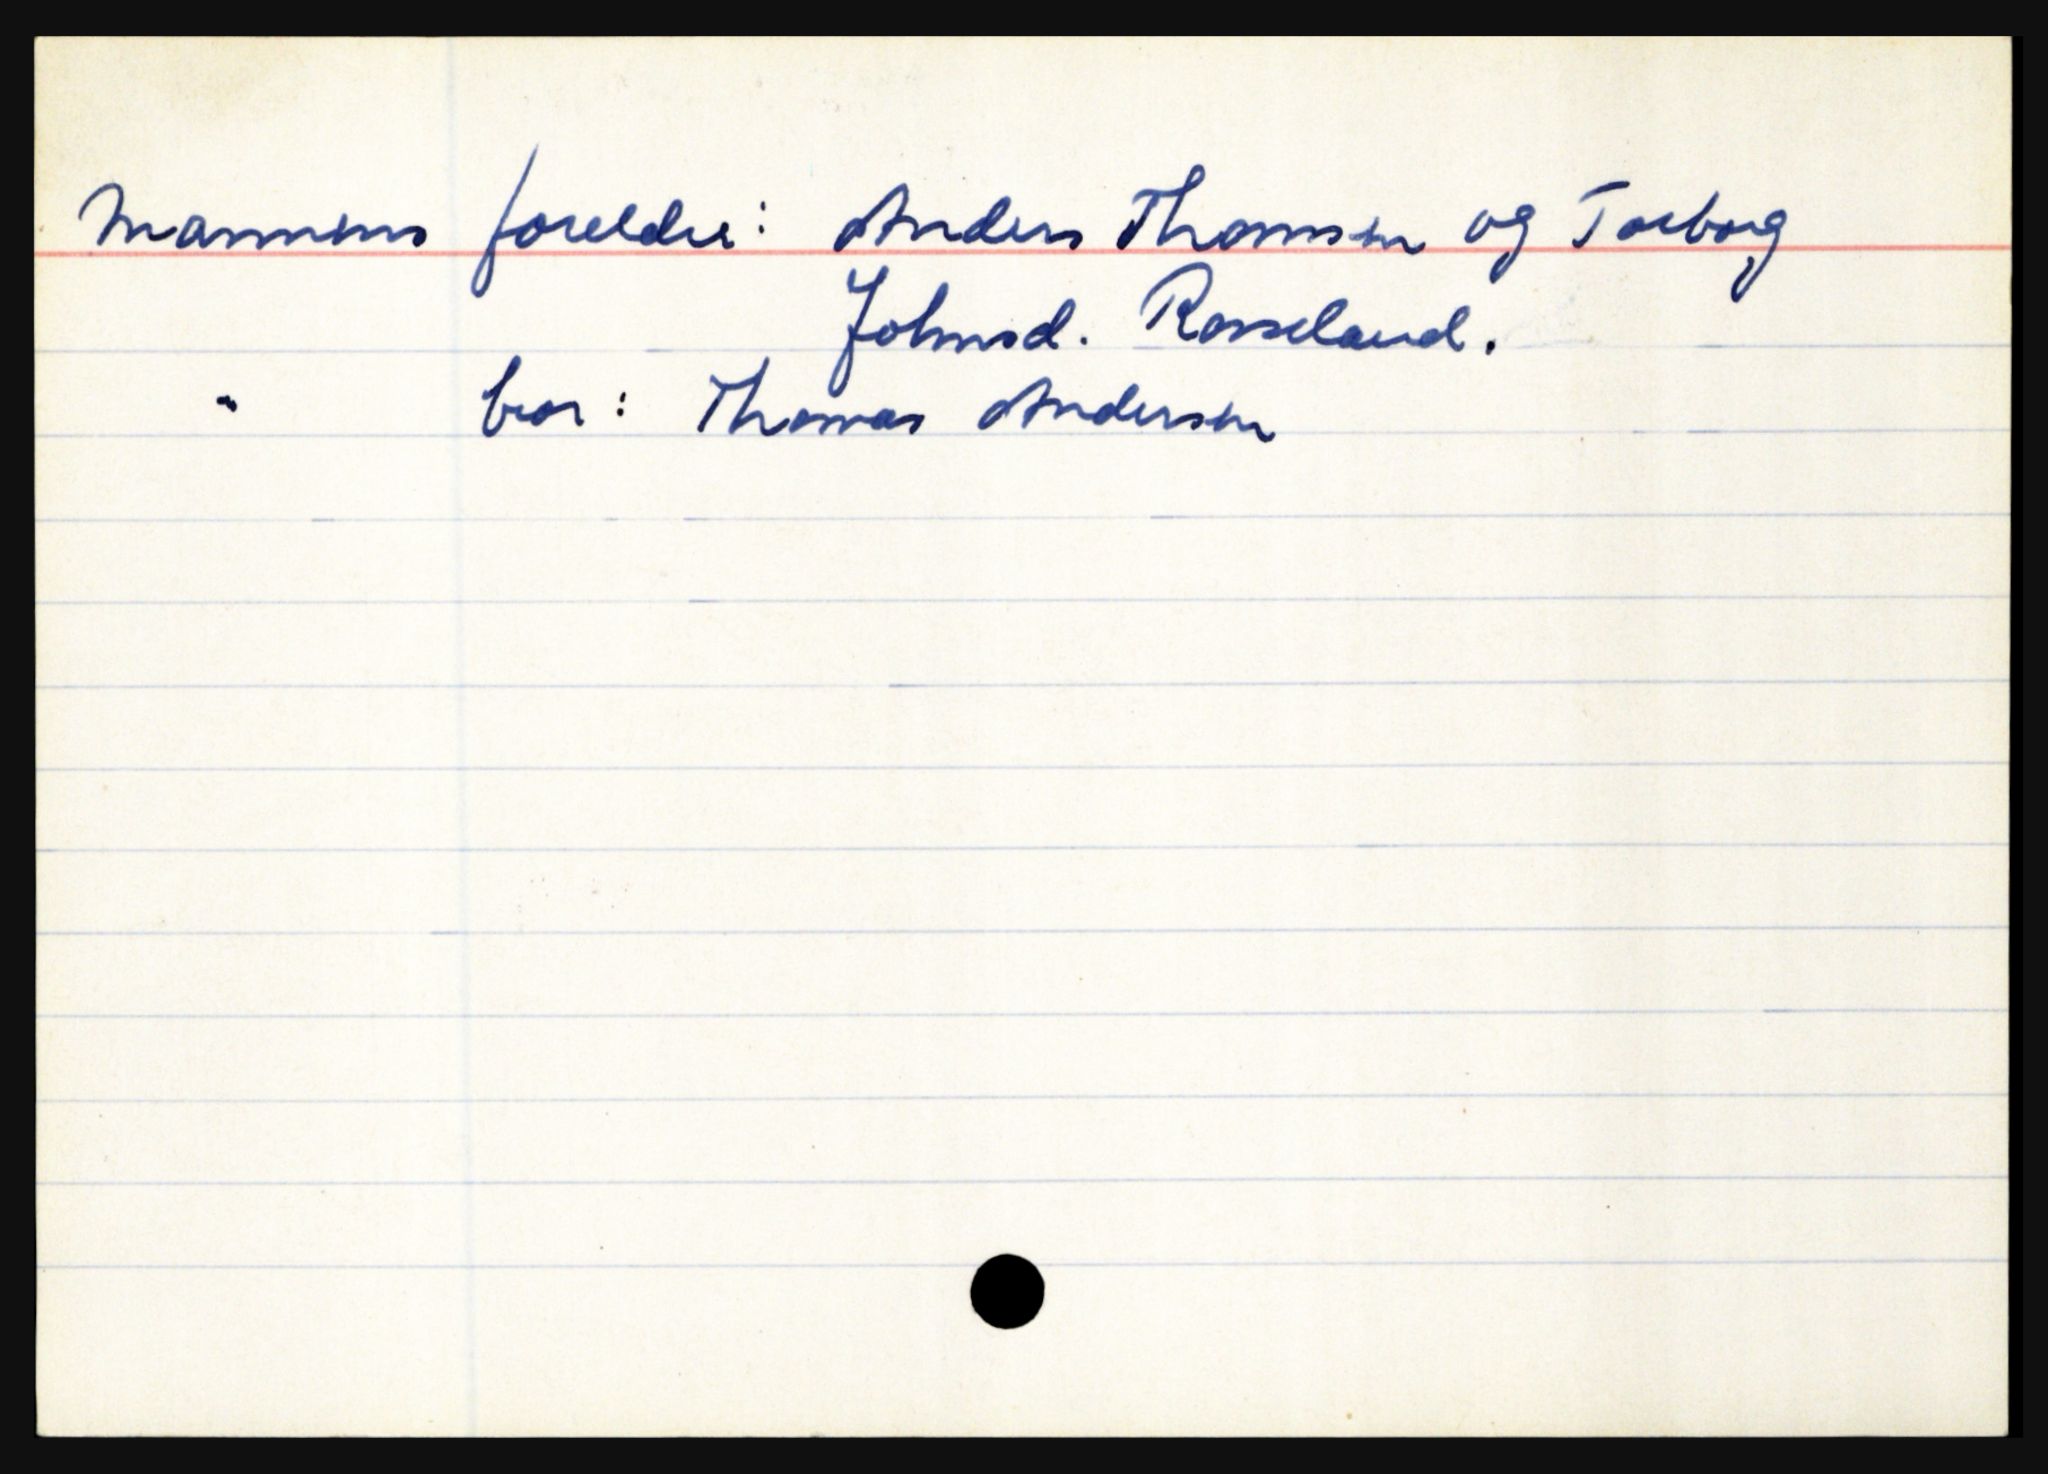 Mannens foreldre: Anders Thomsen og Torborg
Johnsd. Rosseland.
" bror: Thomas Andersen